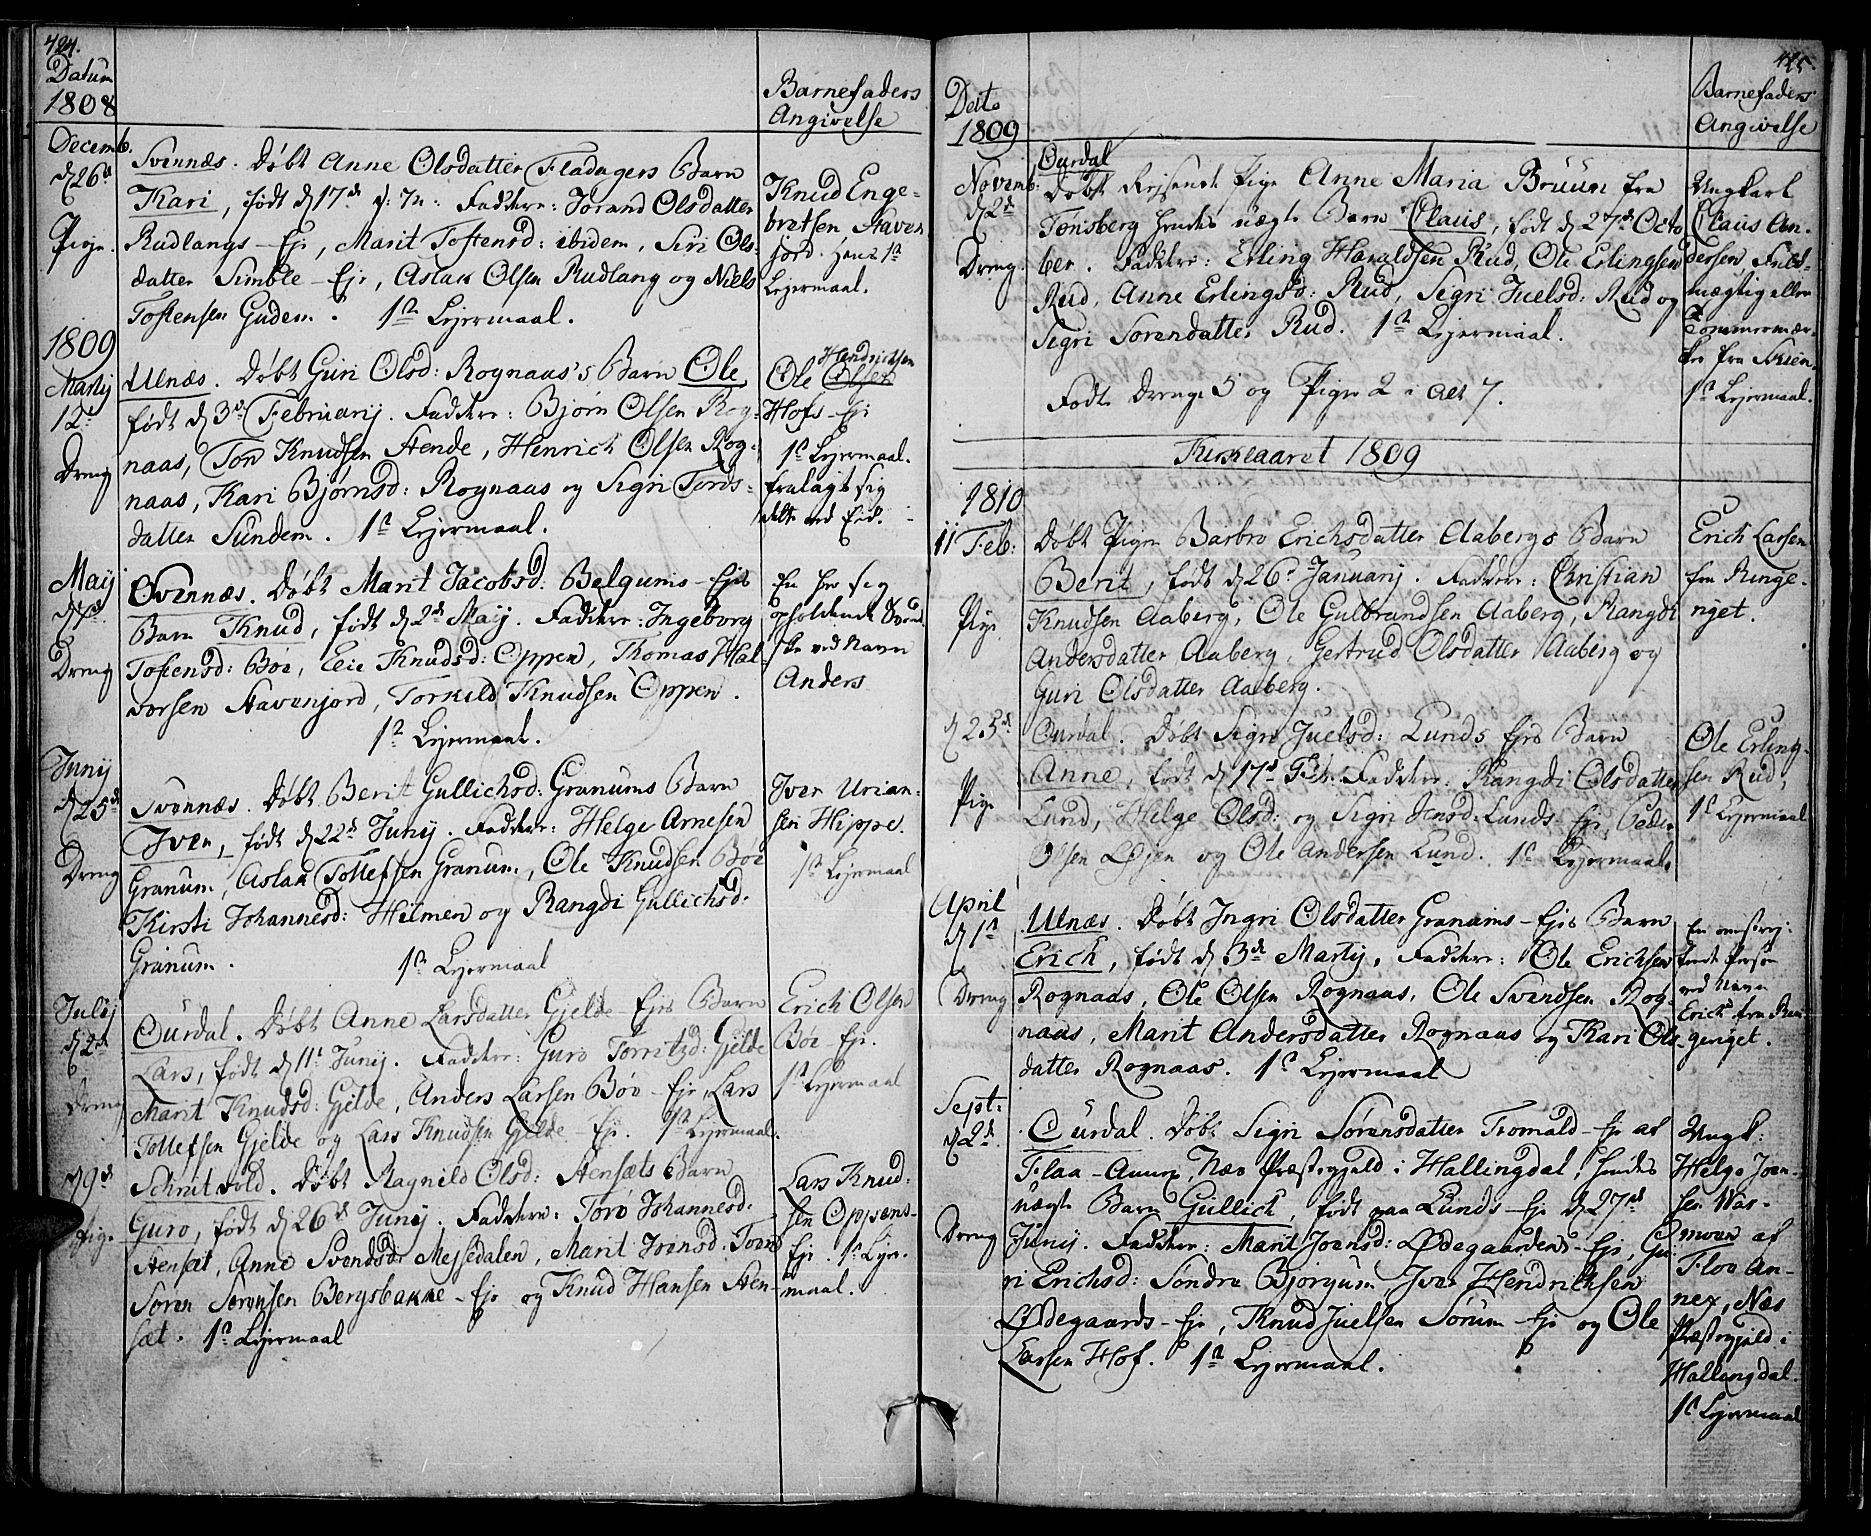 424.
Datum
1808
Barnefaders
Angivelse
Decemb.
d 26d
Pige.
Svennæs. Døbt Anne Olsdatter Fladagers Barn
Kari, født d 17d Fadder: Jorand Olsdatter
Rudlangs-Eje, Marit Toftensd: ibidem, Siri Ols-
datter Simble-Eje, Aslak Olsen Rudlang og Niels
Tostensen Gudem. 1st Lejermaal.
Knud Enge-
bretsen Haven
jord. Hans 1st
Lejermaal.
1809
Martij
12t
Dreng
Ulnæs. Døbt Guri Olsd: Rognaas's Barn Ole
født d 3d Februarij. Fadder: Bjørn Olsen Rog-
naas, Tord Knudsen Hende, Henrich Olsen Rog-
naas, Kari Bjørnsd: Rognaas og Sigri Tords-
datter Sundem. 1st Lejermaal.
Hendrichsen
Ole Olsen
Hofs-Eje
1st Lejermaal.
fralagt sig
dette ved Eed.
Maij
d 7d
Dreng
Svennæs. Døbt Marit Jacobsd: Belgums-Ejes
Barn Knud, født d 2d Maij. Fadder: Ingeborg
Tostensd: Bøe, Eli Knudsd: Oppen, Thomas Hal-
vorsen Havenjord, Torkild Knudsen Oppen.
1st Lejermaal.
En her sig
opholdende Svend-
ske ved Navn
Anders
Junij
d 25d
Dreng
Svennæs. Døbt Berit Gullichsd: Granums Barn
Iver, født d 22d Junij. Fadder: Helge Arnesen
Granum, Aslak Tollefsen Granum, Ole Knudsen Bøe
Kirsti Johannesd: Hilmen og Rangdi Gullichsd:
Granum. 1st Lejermaal
Iver Urian-
sen Hippe.
1st Lejermaal
Julij
d 2d
Dreng
Ourdal. Døbt Anne Larsdatter Gjelde-Ejes Barn
Lars, født d 11t Junij. Fadder: Guro Torritzd: Gjelde
Marit Knudsd: Gjelde, Anders Larsen Bøe-Eje, Lars
Tollefsen Gjelde og Lars Knudsen Gjelde-Eje. 1st Lejermaal.
Erich Olsen
Bøe-Eje.
1st Lejermaal
d 9d
Pige
Schrutvold. Døbt Ragnild Olsd: Stensæts Barn
Guro, født d 26d Junij. Fadder: Toro Johannesd:
Stensæt, Anne Svendsdr Messedalen, Marit Joensd:
Søren Sørensen Bergsbakke-Eje og Knud Hansen Sten-
sæt. 1st Lejermaal
Lars Knud-
sen Oppens-
Eje 1st Lejer-
maal.
425.
Dato
1809
Barnefaders
Angivelse
Novemb:
d 2d
Dreng.
Ourdal
Døbt Rejsende Pige Anne Maria Bruun fra
Tønsberg hendes uægte Barn Claus, født d 27d Octo
ber. Fadder: Erling Haraldsen Rud, Ole Erlingsen
Rud, Anne Erlingsd: Rud, Sigri Juelsd: Rud og
Sigri Sørensdatter Rud. 1st Lejermaal.
Ungkarl
Claus An-
dersen Fuld-
mægtig eller
Tømmermær-
ker fra Skien.
1st Lejermaal.
Fødte Drenge 5 og Piger 2 i alt 7.
Kirkeaaret 1809
1810
11 Feb:
Pige
Døbt Pigen Barbro Erichsdatter Aabergs Barn
Berit, født d 26d Januarij. Fadder: Christian
Knudsen Aaberg, Ole Gulbrandsen Aaberg, Rangdi
Andersdatter Aaberg, Gertrud Olsdatter Aaberg og
Guri Olsdatter Aaberg.
Erich Larsen
fra Ringe-
riget.
d 25d
Pige
Ourdal. Døbt Sigri Juelsd: Lunds Ejes Barn
Anne, født d 17d Feb: Fadder: Rangdi Olsdatter
Lund, Helge Olsd: og Sigri Jensd: Lunds-Eje, Peder
Olsen Løjen og Ole Andersen Lund. 1st Lejermaal.
Ole Erling-
sen Rud,
1st Lejermaal
April
d 1st
Dreng
Ulnæs. Døbt Ingri Olsdatter Granums-Ejes Barn
Erich, født d 3d Martij. Fadder: Ole Erichsen
Rognaas, Ole Olsen Rognaas, Ole Svendsen Rog-
naas, Marit Andersdatter Rognaas og Kari Ols-
datter Rognaas. 1st Lejermaal
En omstrej-
fende Person
ved Navn
Erich fra Rin-
geriget.
Sept:
d 2d
Dreng
Ourdal. Døbt Sigri Sørensdatter Tromald-Eje af
Flaa-Annex, Næs Præstegjeld i Hallingdal, hendes
uægte Barn Gullich, født paa Lunds-Eje d 27d
Junij. Fadder: Marit Joensd: Ødegaardens-Eje, Gu-
ri Erichsd: Søndre Bjørgum, Iver Hendrichsen
Ødegaards-Eje, Knud Juelsen Sørum-Eje og Ole
Larsen Hof. 1st Lejermaal.
Ungk:
Helge Joen-
sen Was-
moen af
Flaa An-
nex, Næs
Præstegjeld i
Hallingdal.
1st Lejermaal